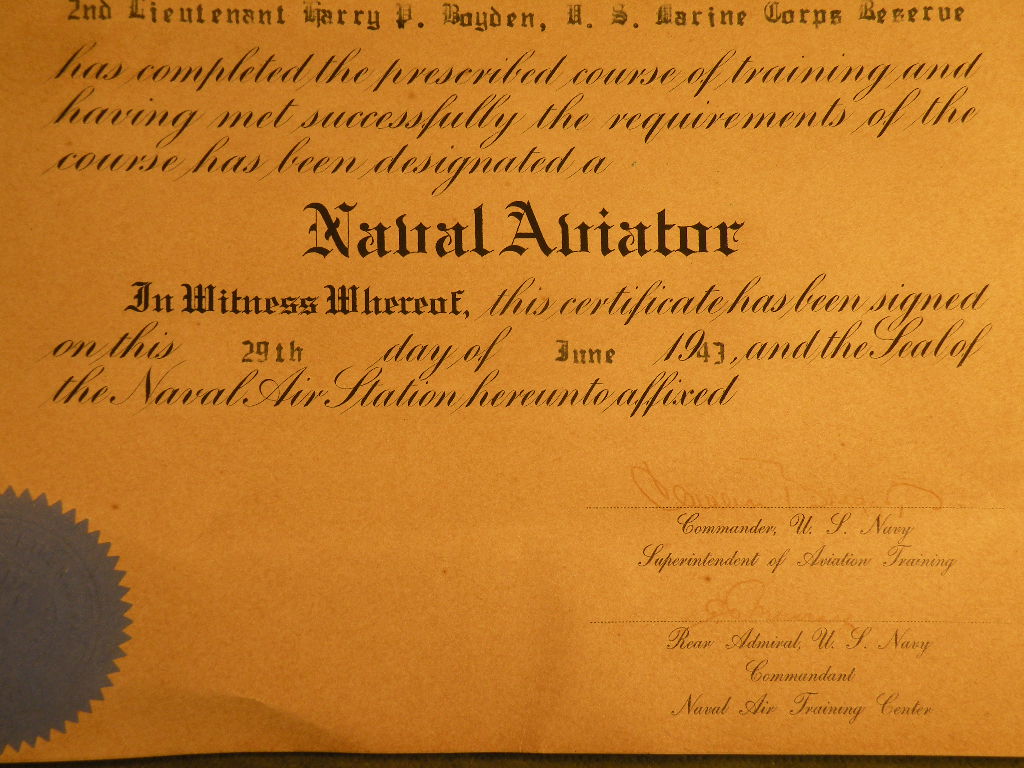 2nd Lieutenant Harry P. Boyden, U. S. Marine Corps Reserve
has completed the prescribed course of training and
having met successfully the requirements of the
course has been designated a
Naval Aviator
In Witness Whereof, this certificate has been signed
on this 29th day of June 1943, and the Seal of
the Naval Air Station hereunto affixed
Commander, U. S. Navy
Superintendent of Aviation Training
Rear Admiral, U. S. Navy
Commandant
Naval Air Training Center